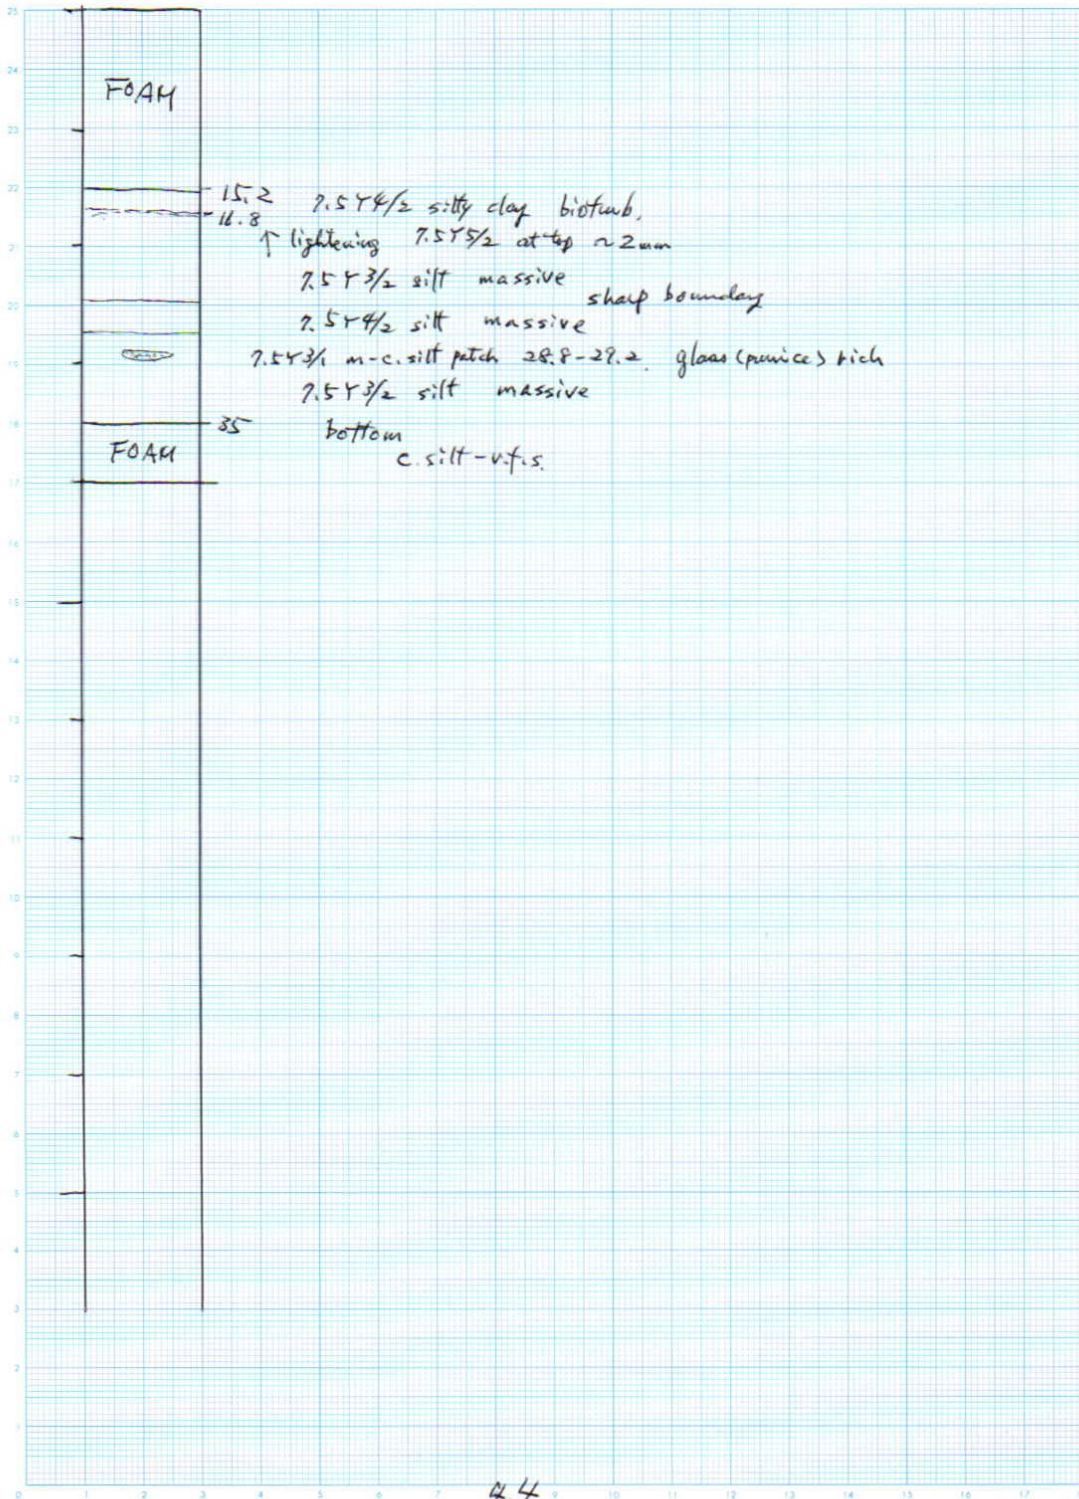 FOAM
15.2 7.5Y4/2 silty clay bioturb.
16.8
↑ lightening 7.5Y5/2 at top ~2mm
7.5Y3/2 silt massive
sharp boundary
7.5Y4/2 silt massive
7.5Y3/1 m-c. silt patch 28.8-29.2. glass (pumice) rich
7.5Y3/2 silt massive
35 bottom
FOAM
c. silt-v.f.s.
25
24
23
22
21
20
19
18
17
16
15
14
13
12
11
10
9
8
7
6
5
4
3
2
1
0 1 2 3 4 5 6 7 9 10 11 12 13 14 15 16 17